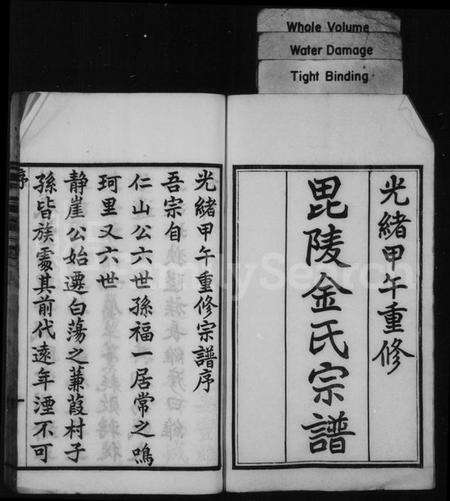 Whole Volume
Water Damage
Tight Binding
光緒甲午重修
毘陵金氏宗譜
光緒甲午重修宗譜序
吾宗自
仁山公六世孫福一居常之鳴
珂里又六世
静崖公始遷白蕩之蒹葭村子
孫皆族處其前代遠年湮不可
序